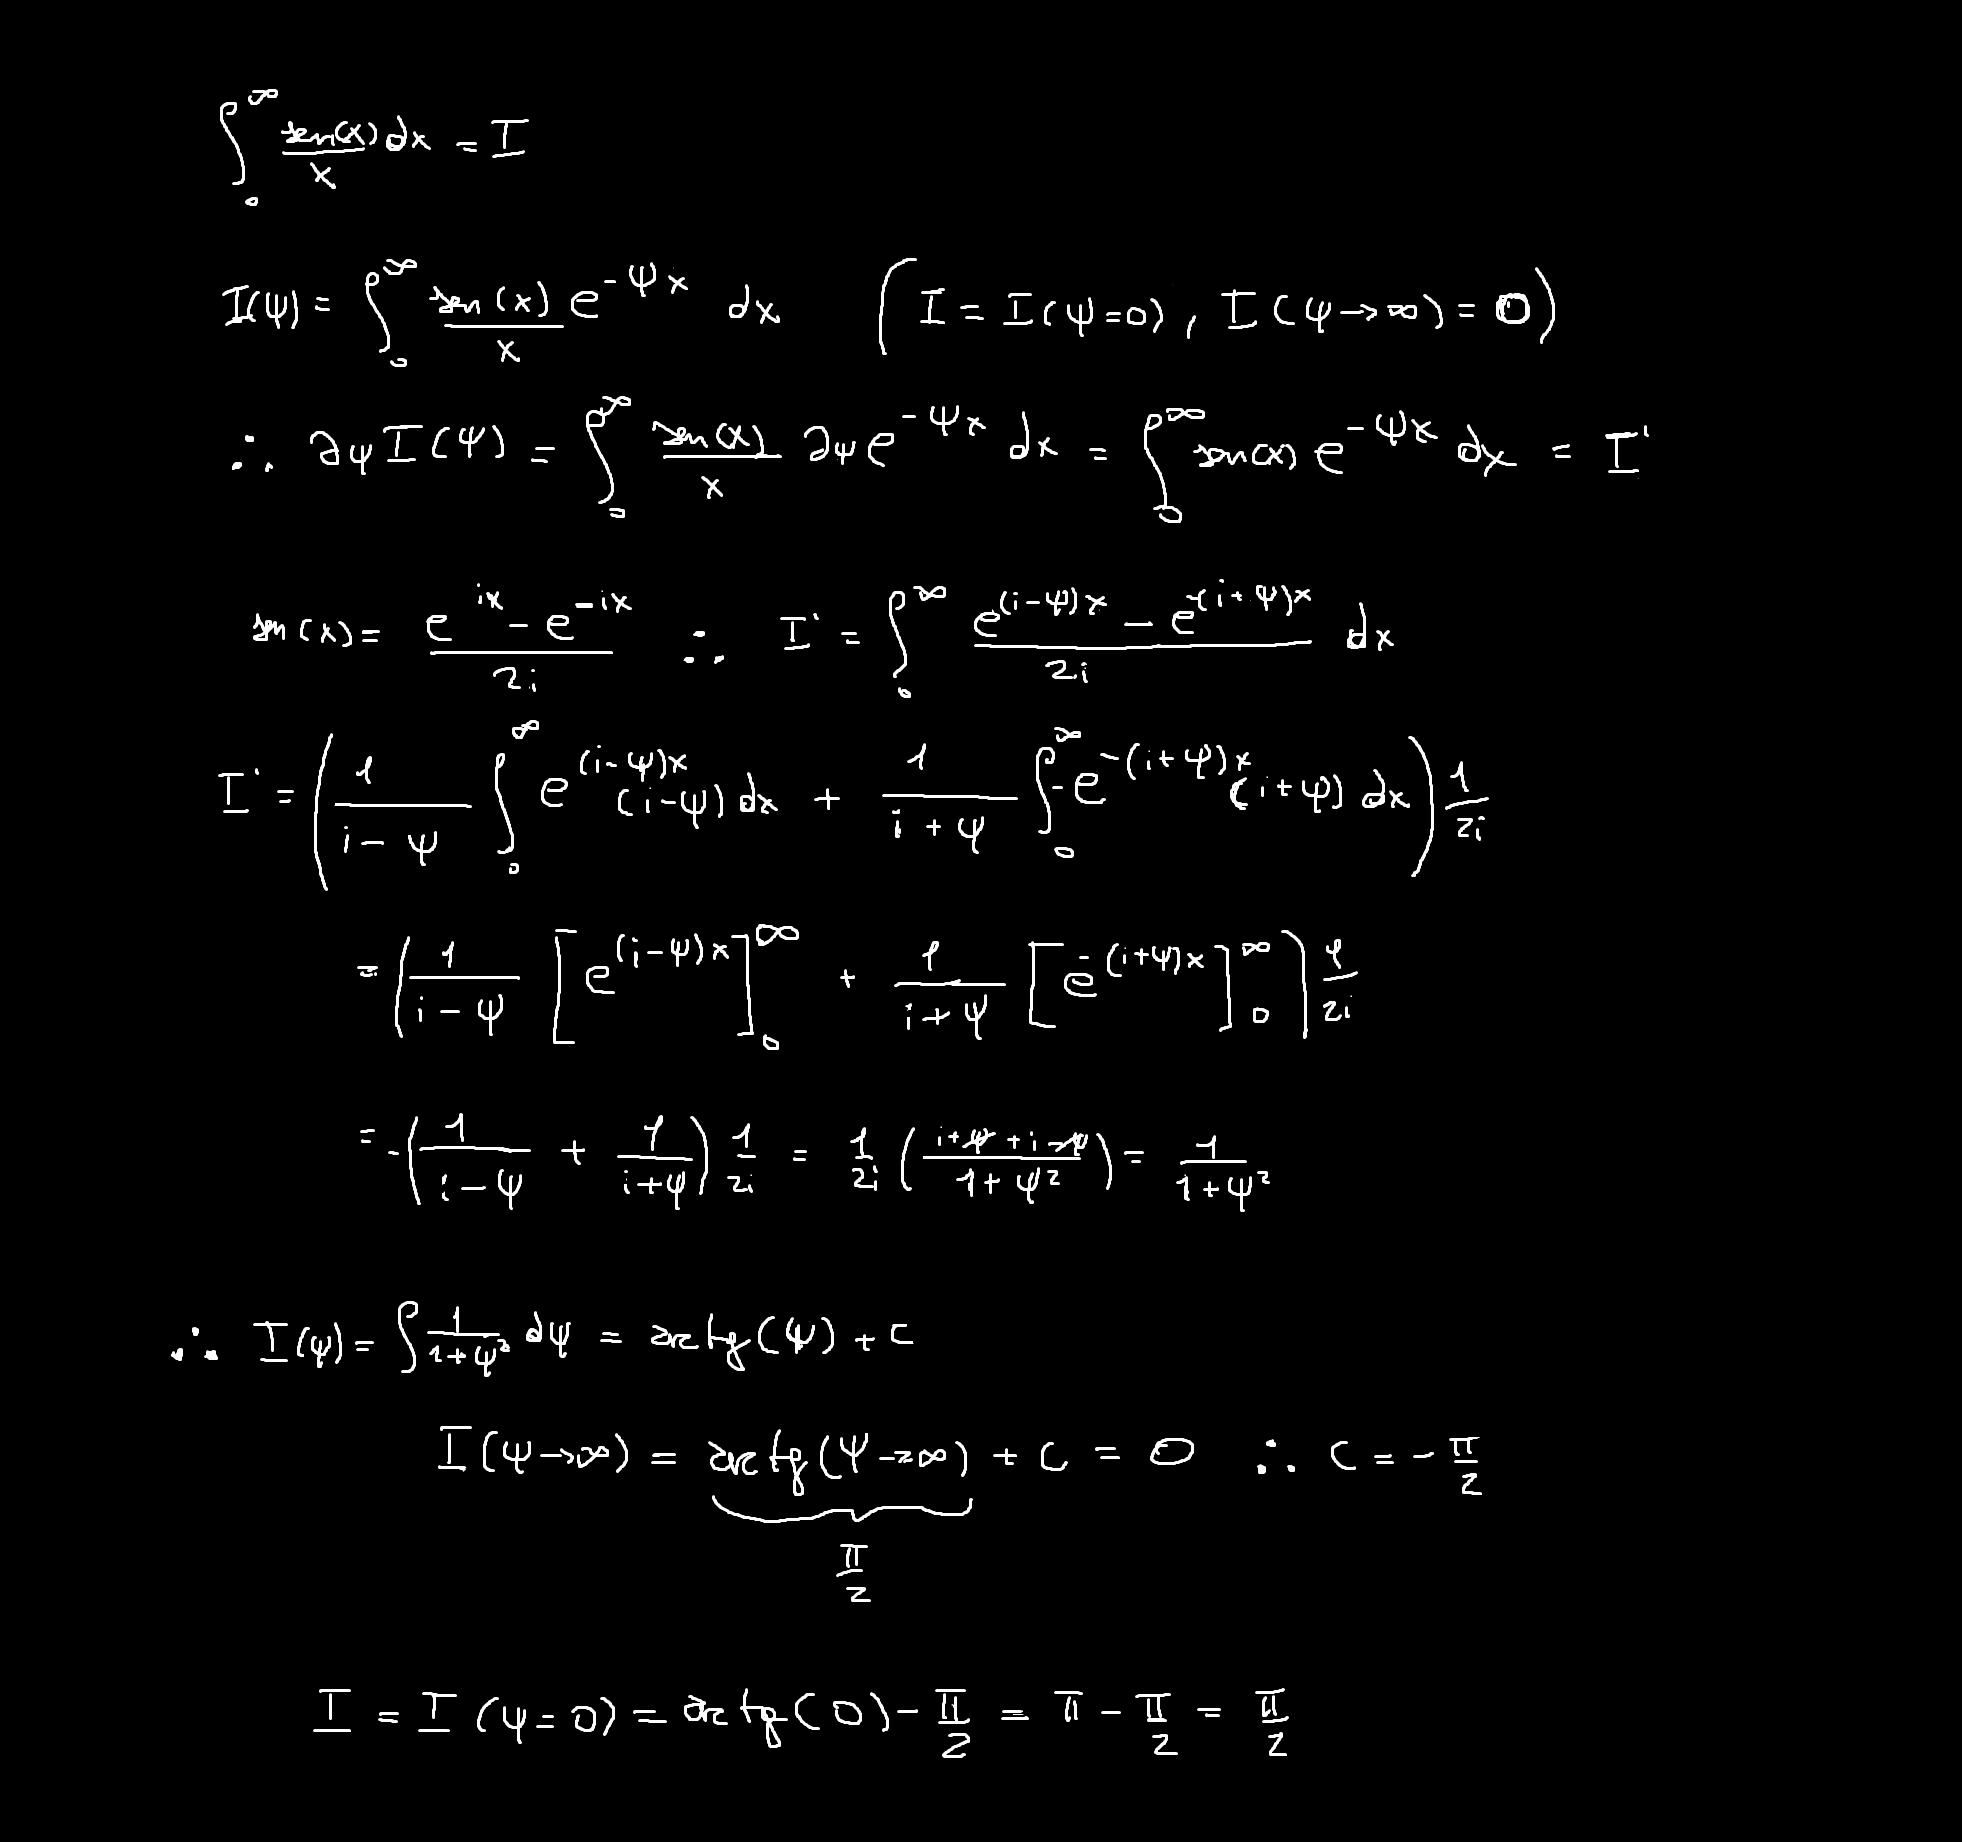 ∫₀^∞ sen(x)/x dx = I
I(ψ) = ∫₀^∞ sen(x)/x e^{-ψx} dx ( I = I(ψ=0), I(ψ→∞) = 0 )
∴ ∂ψ I(ψ) = ∫₀^∞ sen(x)/x ∂ψ e^{-ψx} dx = ∫₀^∞ sen(x) e^{-ψx} dx = I'
sen(x) = (e^{ix} - e^{-ix})/2i ∴ I' = ∫₀^∞ (e^{(i-ψ)x} - e^{-(i+ψ)x})/2i dx
I' = ( 1/(i-ψ) ∫₀^∞ e^{(i-ψ)x} (i-ψ) dx + 1/(i+ψ) ∫₀^∞ -e^{-(i+ψ)x} (i+ψ) dx ) 1/2i
= ( 1/(i-ψ) [ e^{(i-ψ)x} ]₀^∞ + 1/(i+ψ) [ e^{-(i+ψ)x} ]₀^∞ ) 1/2i
= -( 1/(i-ψ) + 1/(i+ψ) ) 1/2i = 1/2i ( (i+ψ+i-ψ)/(1+ψ²) ) = 1/(1+ψ²)
∴ I(ψ) = ∫ 1/(1+ψ²) dψ = arctg(ψ) + c
I(ψ→∞) = arctg(ψ→∞) + c = 0 ∴ c = -π/2
π/2
I = I(ψ=0) = arctg(0) - π/2 = π - π/2 = π/2